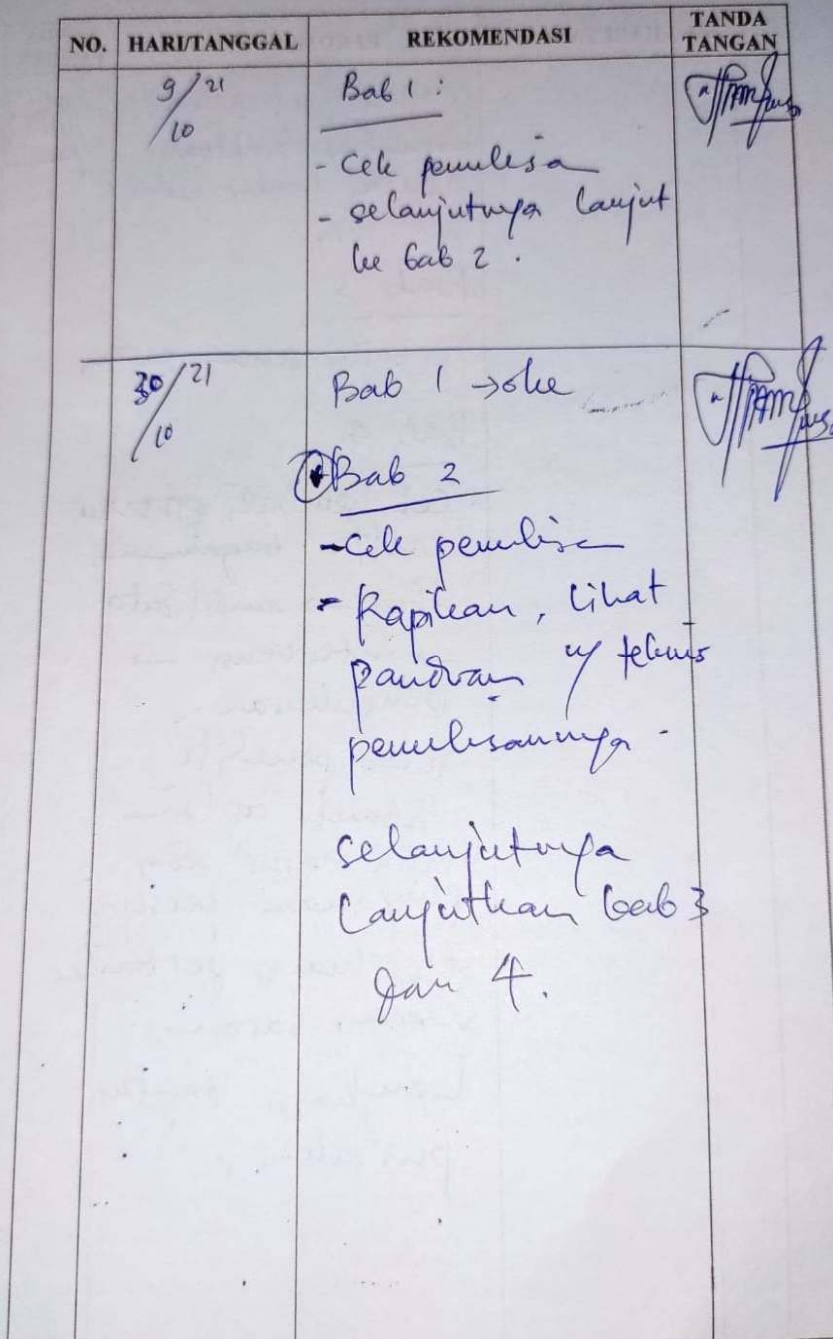 NO. HARI/TANGGAL REKOMENDASI TANDA TANGAN
9/10 21 Bab 1 :
- Cek penulisa
- selanjutnya lanjut
ke bab 2 .
30/10 21 Bab 1 → oke
Bab 2
- Cek penulisa
- Rapikan, lihat
panduan u/ teknis
penulisannya .
selanjutnya
lanjutkan bab 3
dan 4.